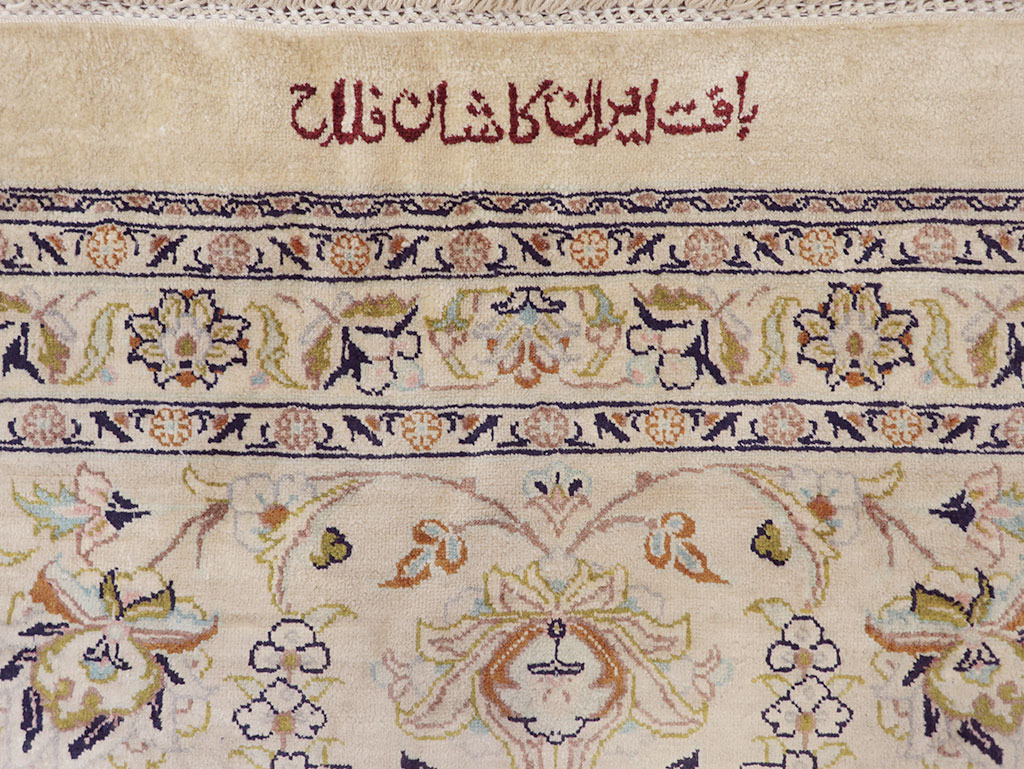 بافت ایران کاشان فلاح